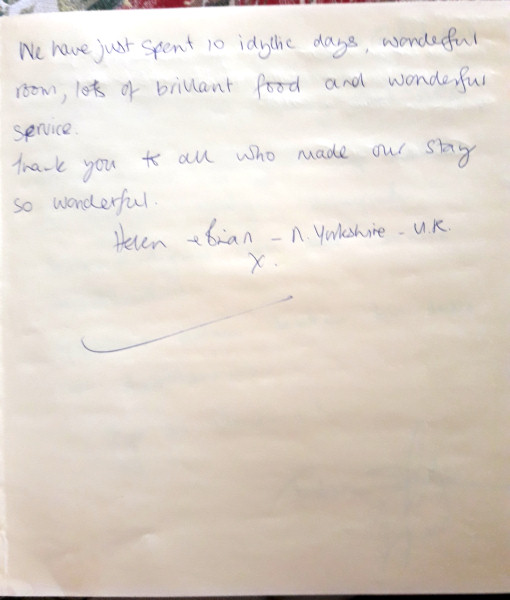 We have just spent 10 idyllic days, wonderful
room, lots of brilliant food and wonderful
service.
Thank you to all who made our stay
so wonderful.
Helen & Brian - N. Yorkshire - U.K.
X.